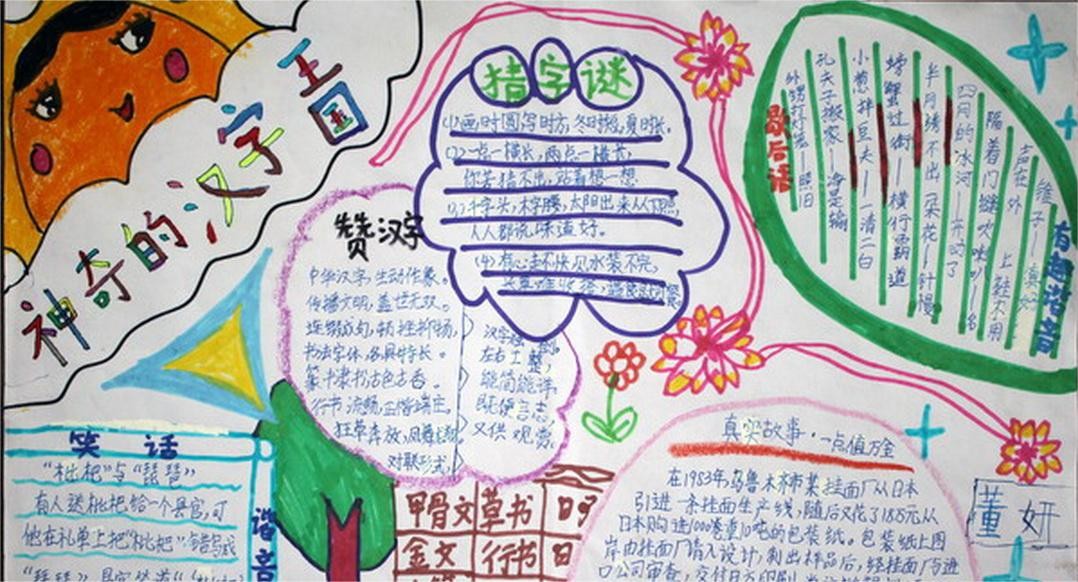 神奇的汉字王国
猜字谜
(1)画时圆,写时方,冬时短,夏时长。
(2)一点一横长,两点一横长,
你若猜不出,站着想一想
(3)千字头,木字腰,太阳出来从下照,
人人都说味道好。
(4)有心走不快,见水装不完
歇后语
外甥打灯笼—照旧
孔夫子搬家—净是输
小葱拌豆夫—一清二白
螃蟹过街—横行霸道
半月绣不出一朵花—针慢
四月的冰河—开动了
隔着门缝吹喇叭—名
声在外
有趣谐音
赞汉字
中华汉字,生动形象。
传播文明,盖世无双。
连缀成句,顿挫抑扬,
书法字体,各具特长。
篆书隶书古色古香。
行书流畅,正楷端庄。
狂草奔放,凤舞
对联形式
汉字
左右工整,
能简能详,
既便言志,
又供观赏。
笑话
“枇杷”与“琵琶”
有人送枇杷给一个县官,可
他在礼单上把“枇杷”错写成
谐音
甲骨文 草书
金文 行书
真实故事·一点值万金
在1983年,乌鲁木齐市某挂面厂从日本
引进一条挂面生产线,随后又花了18万元从
日本购进1000卷重10吨的包装纸。包装纸上图
岸由挂面厂请人设计,制出样品后,经挂面厂与进
口公司审查,交付日方印刷
董妍